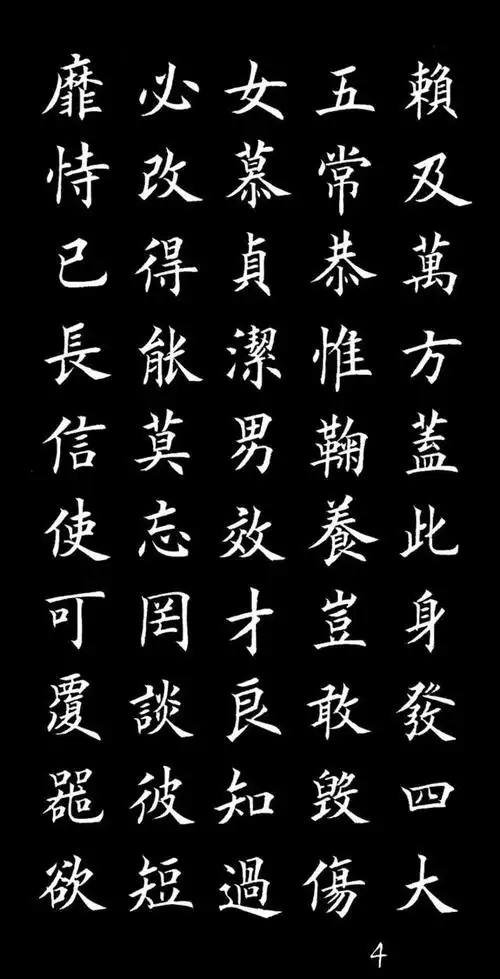 賴及萬方蓋此身發四大
五常恭惟鞠養豈敢毀傷
女慕貞潔男效才良知過
必改得能莫忘罔談彼短
靡恃己長信使可覆器欲
4